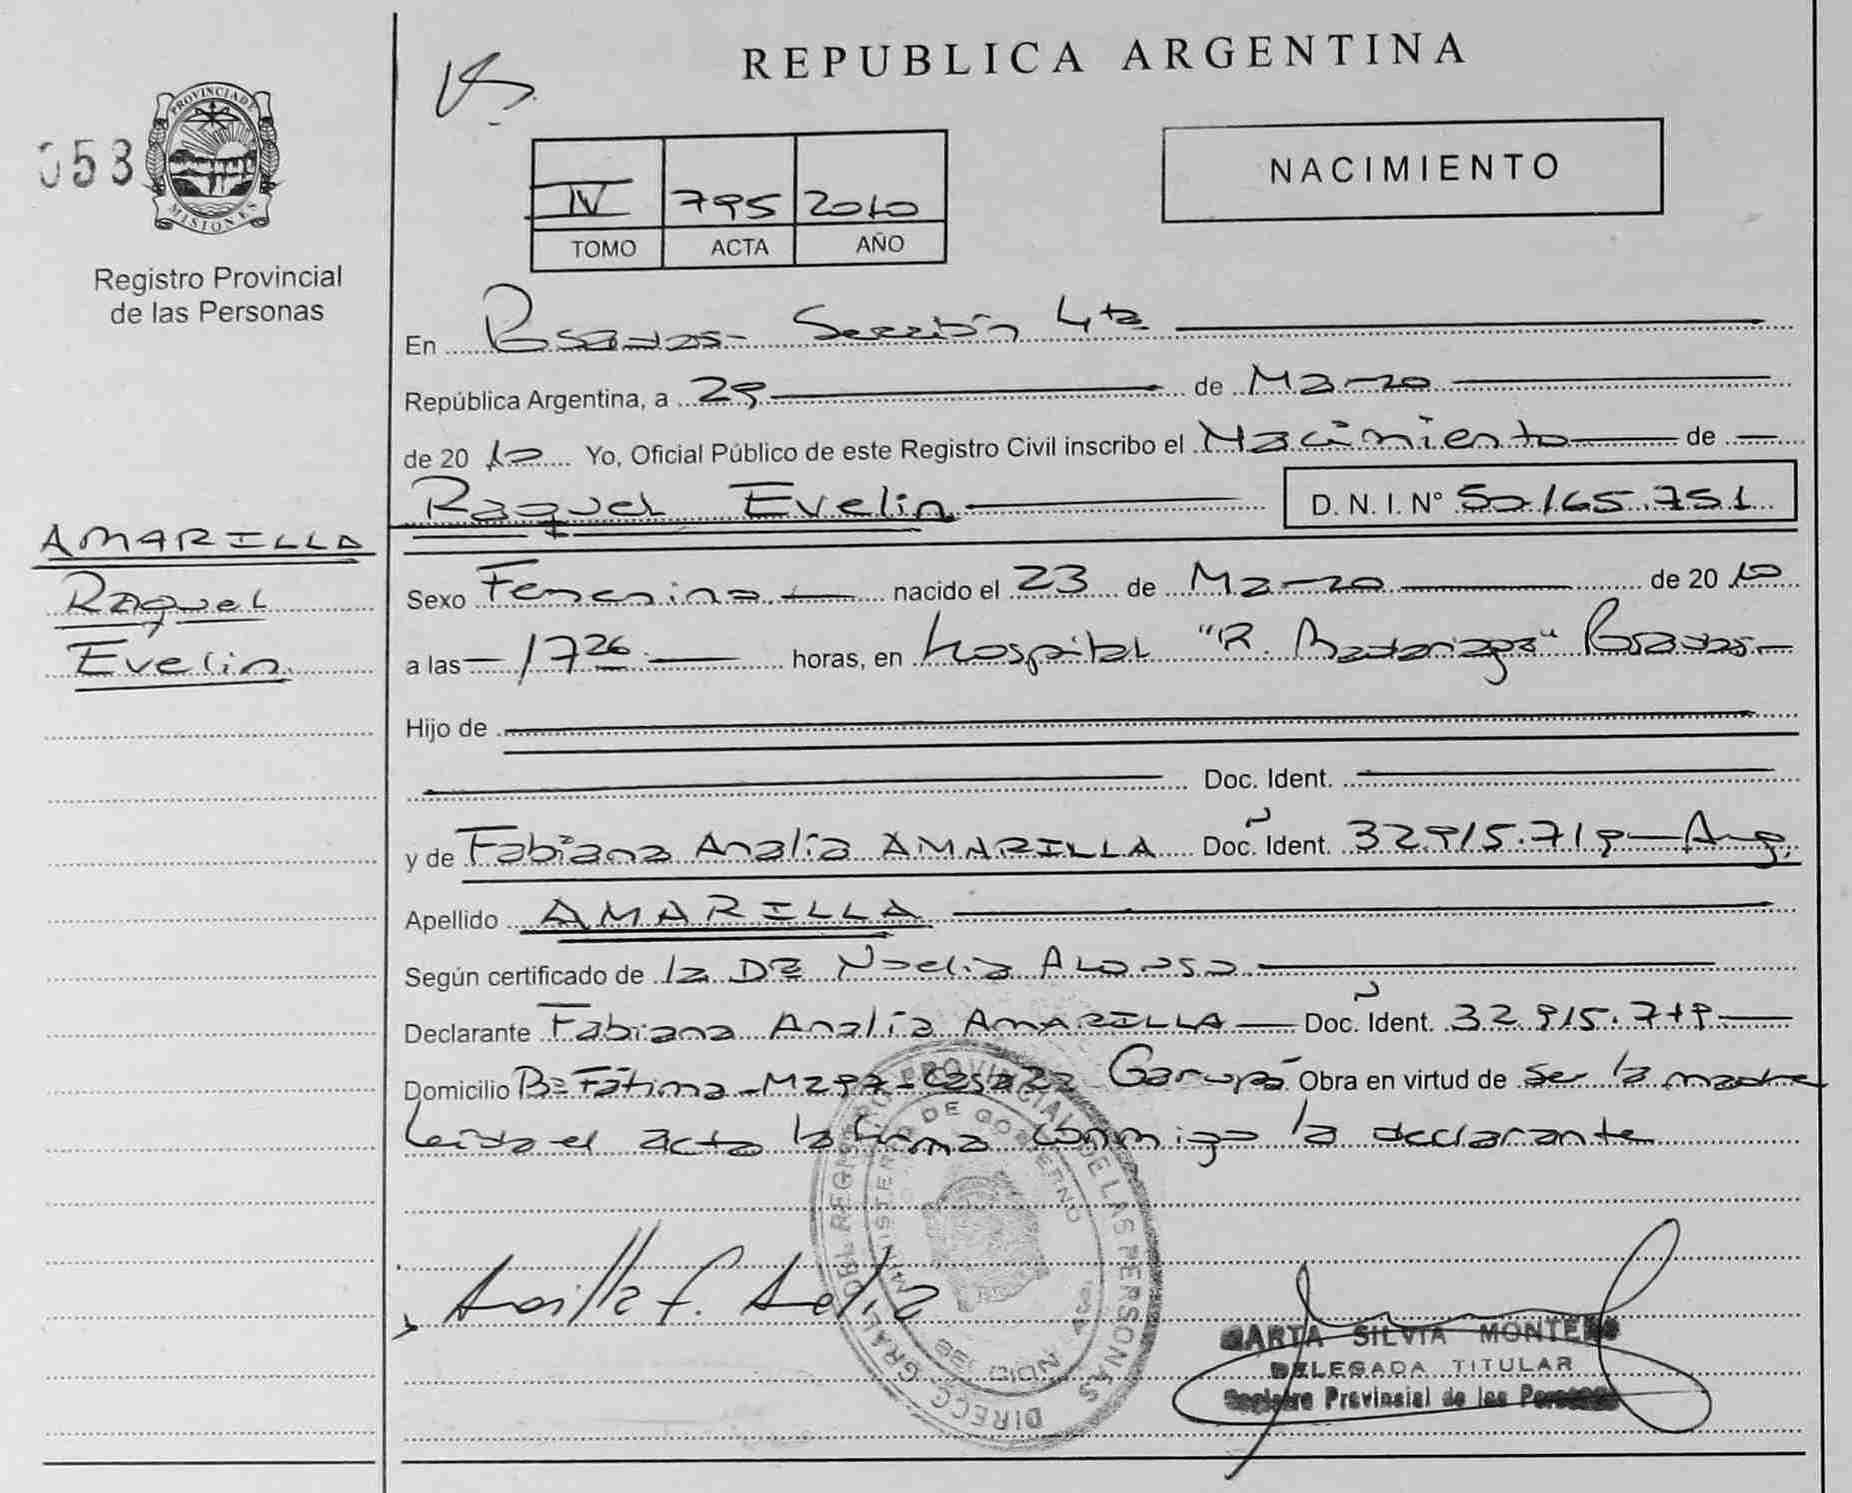 REPUBLICA ARGENTINA
053
PROVINCIA DE MISIONES
Registro Provincial
de las Personas
NACIMIENTO
IV 795 2010
TOMO ACTA AÑO
En Posadas- Sección 4ta
República Argentina, a 29 de Marzo
de 20 10 Yo, Oficial Público de este Registro Civil inscribo el Nacimiento de
Raquel Evelin D. N. I. N° 50.165.751
AMARILLA
Raquel
Evelin
Sexo Femenino nacido el 23 de Marzo de 20 10
a las 17 26 horas, en Hospital "R. Madariaga" Posadas
Hijo de
Doc. Ident.
y de Fabiana Analía AMARILLA Doc. Ident. 32.915.719 Arg.
Apellido AMARILLA
Según certificado de la Dra Noelia Alonso
Declarante Fabiana Analía AMARILLA Doc. Ident. 32.915.719
Domicilio Bº Fátima - Mz 97 - Casa 22 Garupá Obra en virtud de ser la madre
Leída el acta la firma conmigo la declarante
DIRECC. GRAL. DEL REGISTRO PROVINCIAL DE LAS PERSONAS
MINISTERIO DE GOBIERNO
MARTA SILVIA MONTERO
DELEGADA TITULAR
Registro Provincial de las Personas